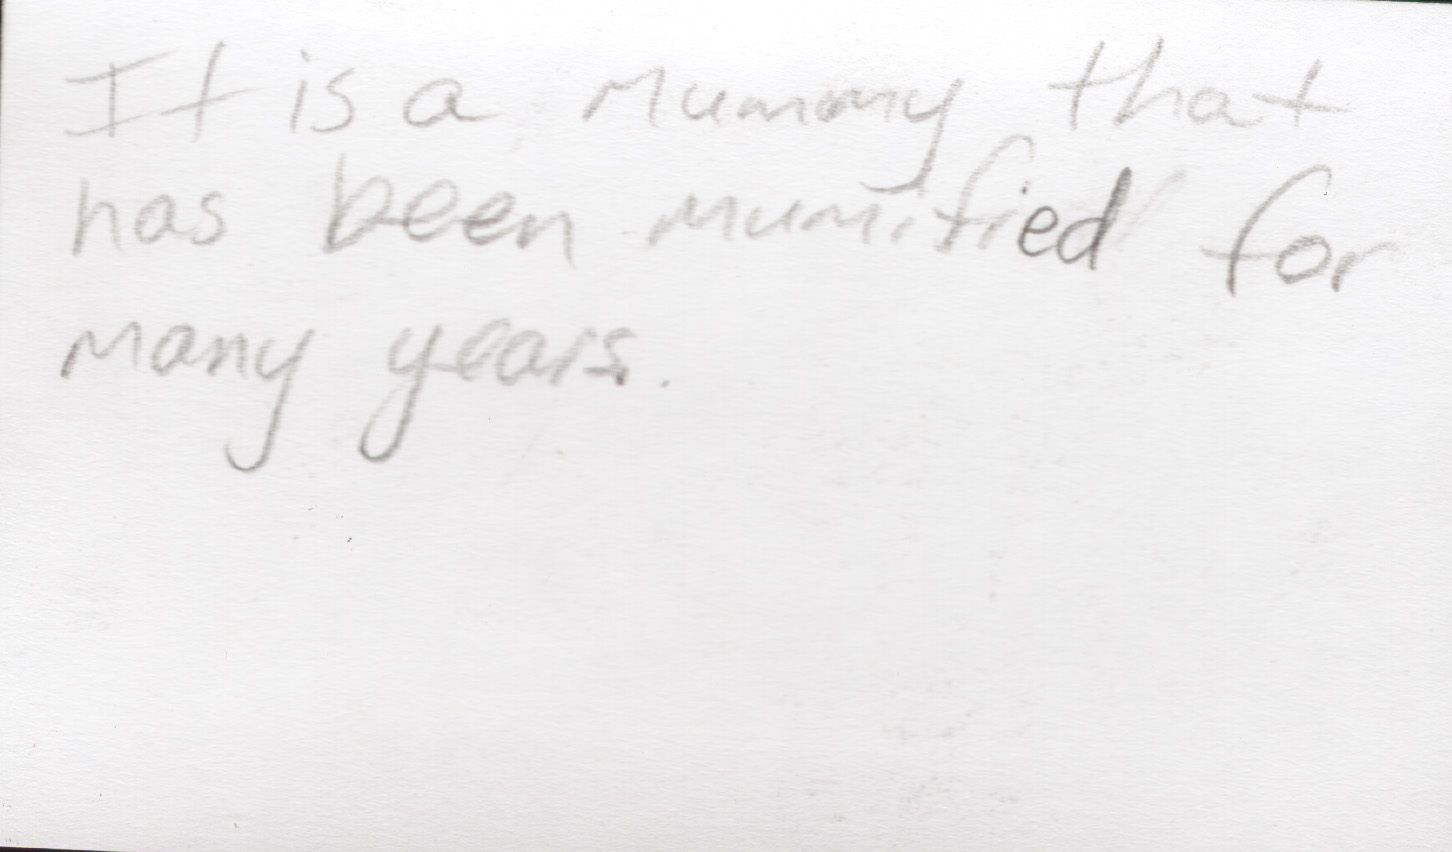 It is a Mummy that
has been mumified for
many years.